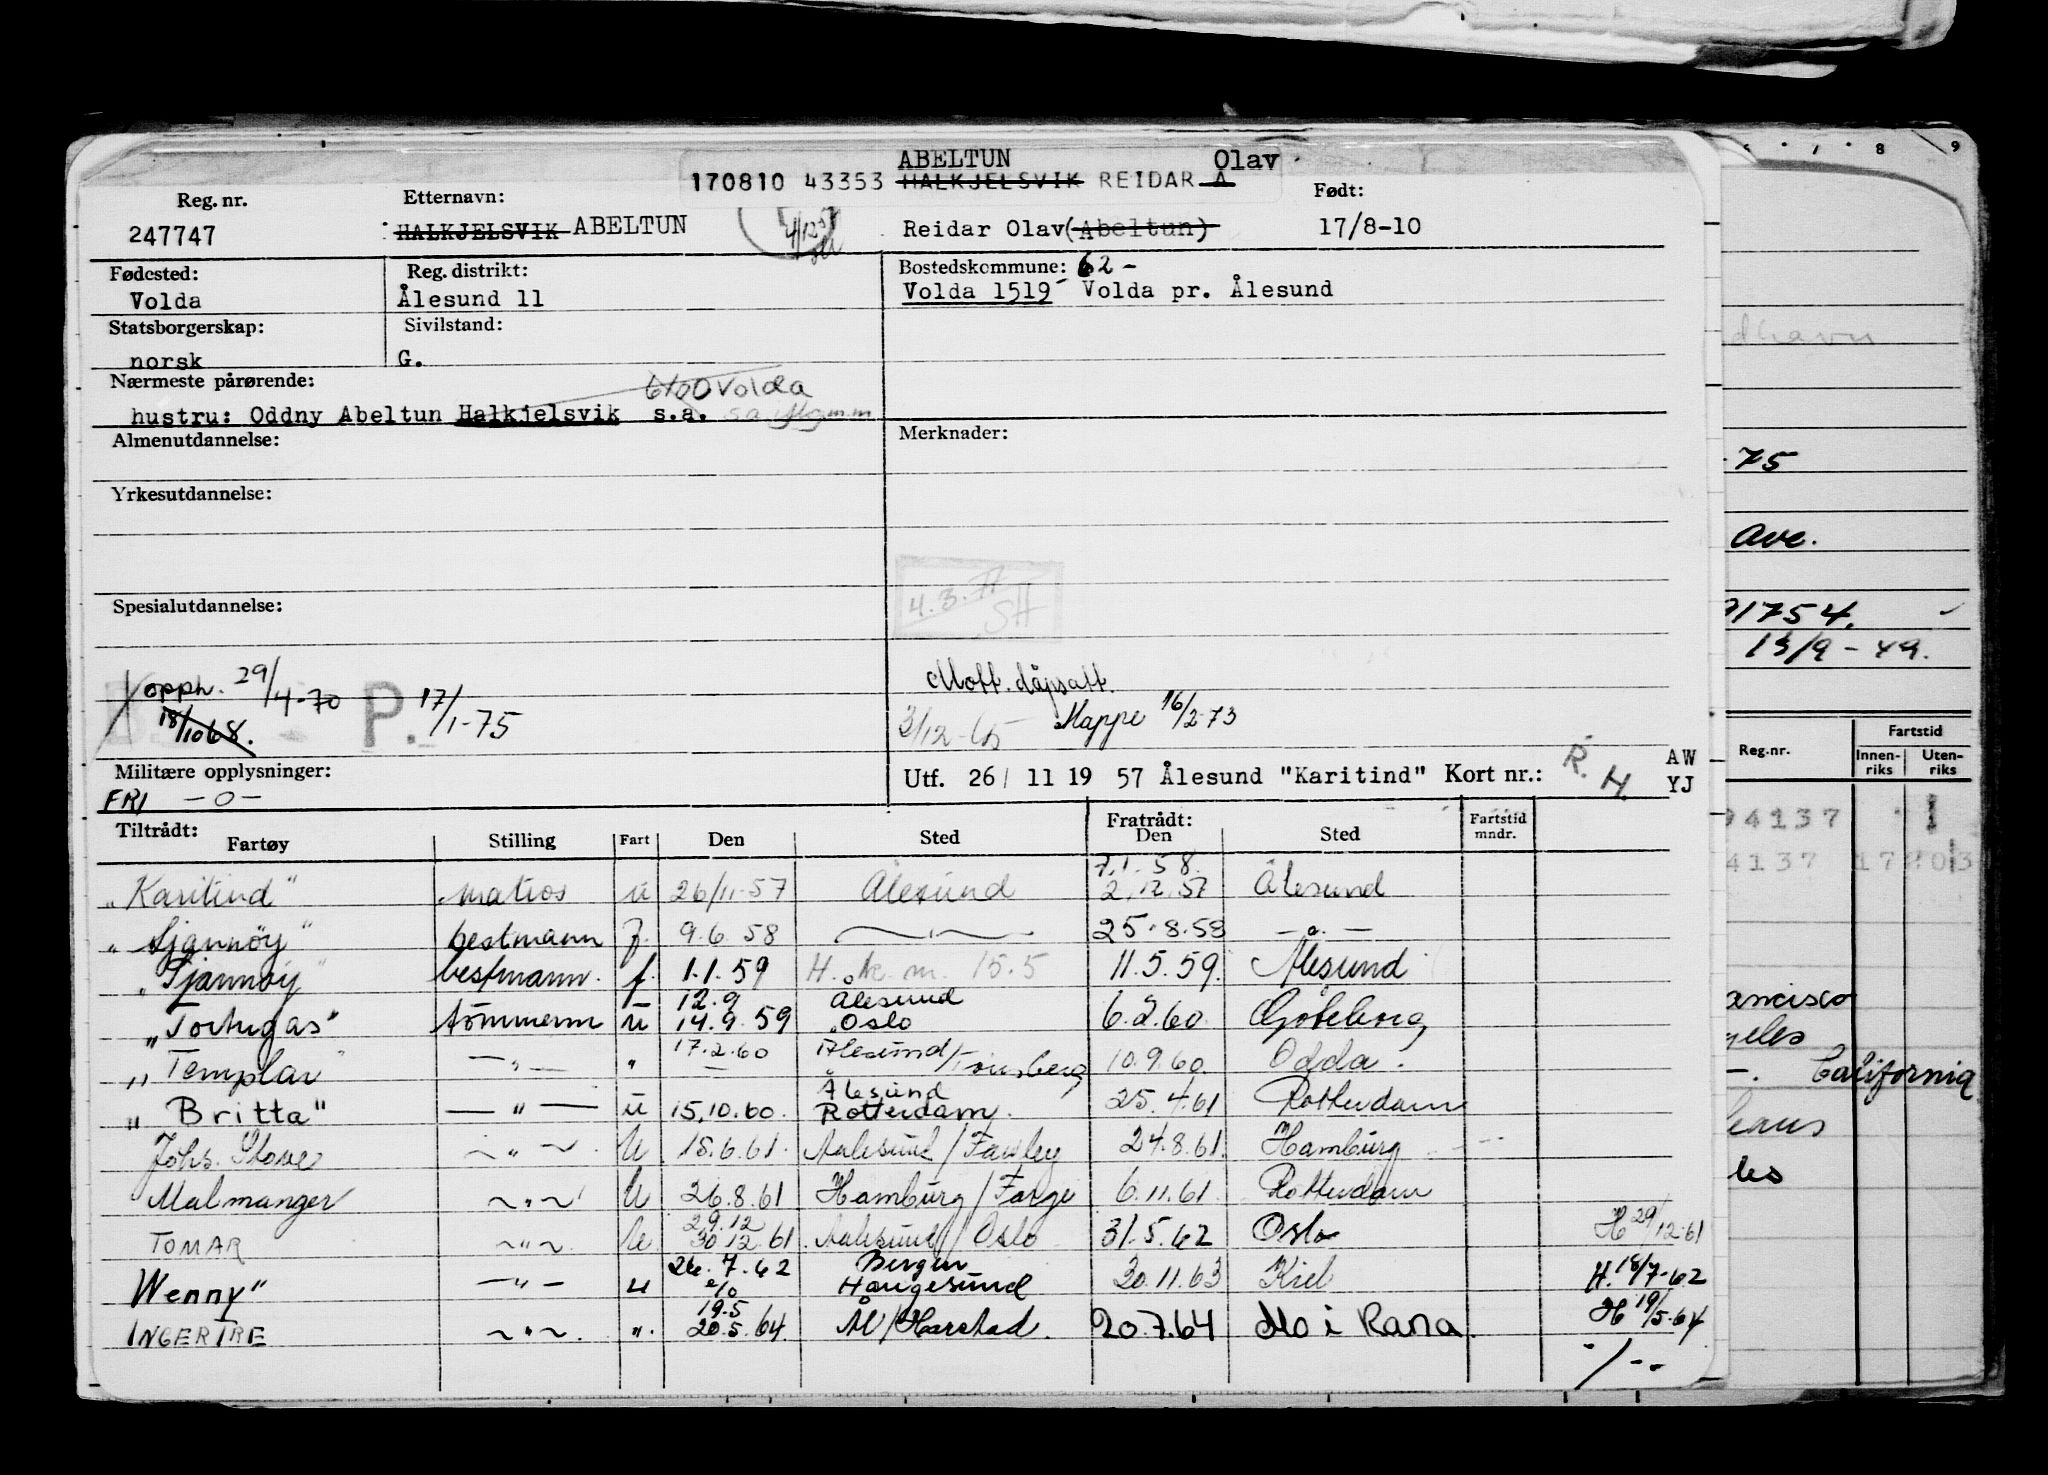 ABELTUN Olav
170810 43353 HALKJELSVIK REIDAR A
Reg. nr. Etternavn: Født:
247747 HALKJELSVIK ABELTUN Reidar Olav (Abeltun) 17/8-10
Fødested: Reg. distrikt: Bostedskommune: 62-
Volda Ålesund 11 Volda 1519 Volda pr. Ålesund
Statsborgerskap: Sivilstand:
norsk G.
Nærmeste pårørende: 6100 Volda
hustru: Oddny Abeltun Halkjelsvik s.a.
Almenutdannelse: Merknader:
Yrkesutdannelse:
4.3.
SH
Spesialutdannelse:
opph. 29/4-70 P. 17/1-75 Mott. dåpsatt.
18/10 68. 3/12-65 Mappe 16/2-73
Militære opplysninger: Utf. 26/ 11 19 57 Ålesund "Karitind" Kort nr.: R. H. AW
FRI -0- YJ
Tiltrådt: Fratrådt: Fartstid
Fartøy Stilling Fart Den Sted Den Sted mndr.
7.1.58.
"Karitind" matros u 26/11-57 Ålesund 2.12.57 Ålesund
" bestmann f. 9.6.58 25.8.58 -"-
bestmann. f. 1.1.59 15.5 11.5.59. Ålesund
12.9 Ålesund
"Tortugas" tømmerm u 14.9.59 Oslo 6.2.60 Gøteborg
"Templar" -"- " 17.2.60 Ålesund/Tønsberg 10.9.60. Odda.
Ålesund
"Britta" -"- u 15.10.60. Rotterdam. 25.4.61 Rotterdam
Johs. Stove -"- U 15.6.61. Aalesund/Fawley 24.8.61. Hamburg
Malmanger -"- U 26.8.61 Hamburg/Farge 6.11.61. Rotterdam
29.12
TOMAR -"- U 30 12.61 Aalesund/Oslo 31.5.62 Oslo H 29/12-61
26.7.62 Bergen
Wenny" -"- u Haugesund 30.11.63 Kiel H. 18/7-62
19.5
INGERTRE -"- ". 20.5.64. Ål/Harstad. 20.7.64 Mo i Rana H 19/5-64
8 9
75
Ave.
1754.
13/9-49.
Fartstid
Reg.nr. Innen-riks Uten-riks
94137 1
4137
ancisco
California